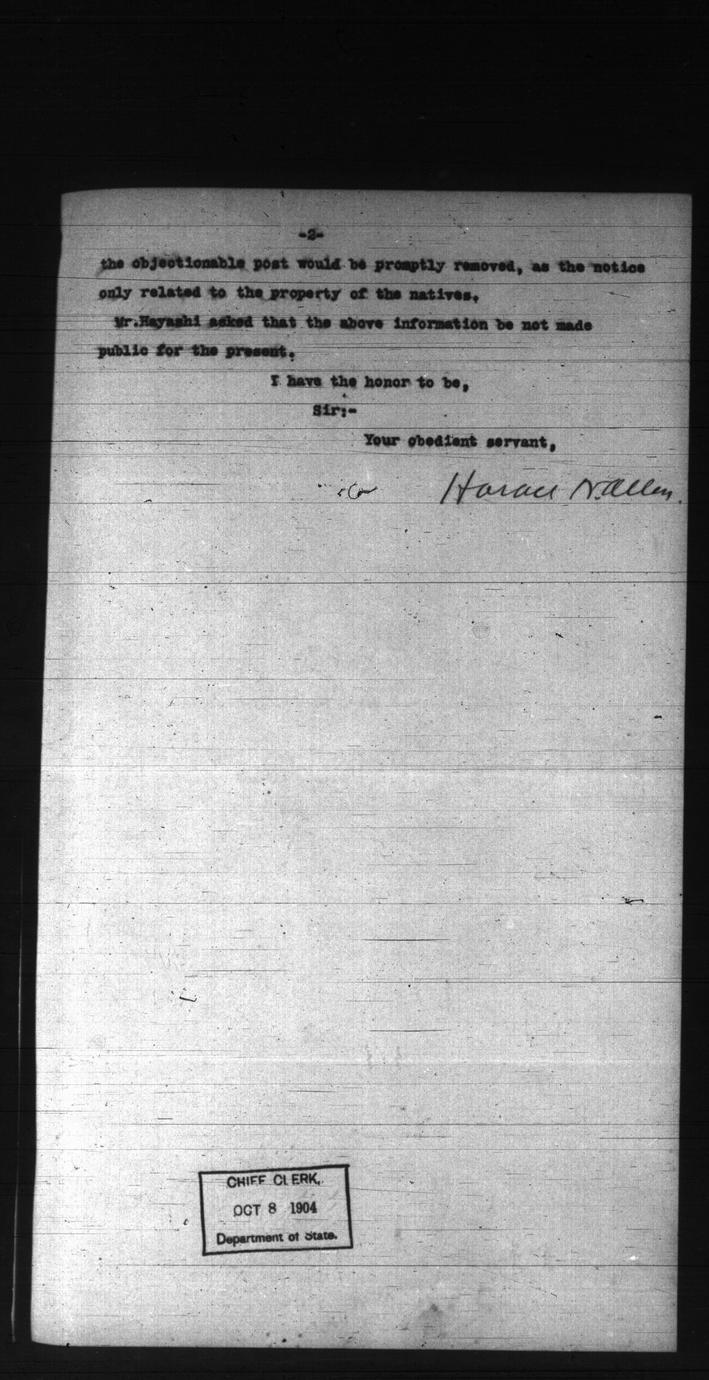 -2-
the objectionable post would be promptly removed, as the notice
only related to the property of the natives.
Mr.Hayashi asked that the above information be not made
public for the present.
I have the honor to be,
Sir:-
Your obedient servant,
Horace N. Allen.
CHIEF CLERK,
OCT 8 1904
Department of State.